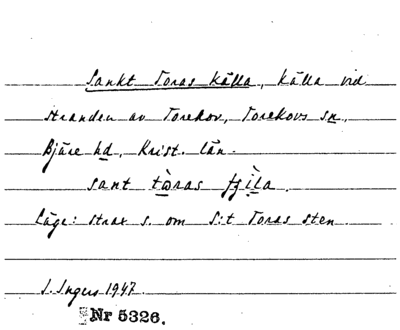 Sankt Toras källa, källa vid
stranden av Torekov, Torekovs sn,
Bjäre hd, Krist. län.
sant tòras
Läge: strax s. om S:t Toras sten
I. Ingers 1947.
Nr 5326.